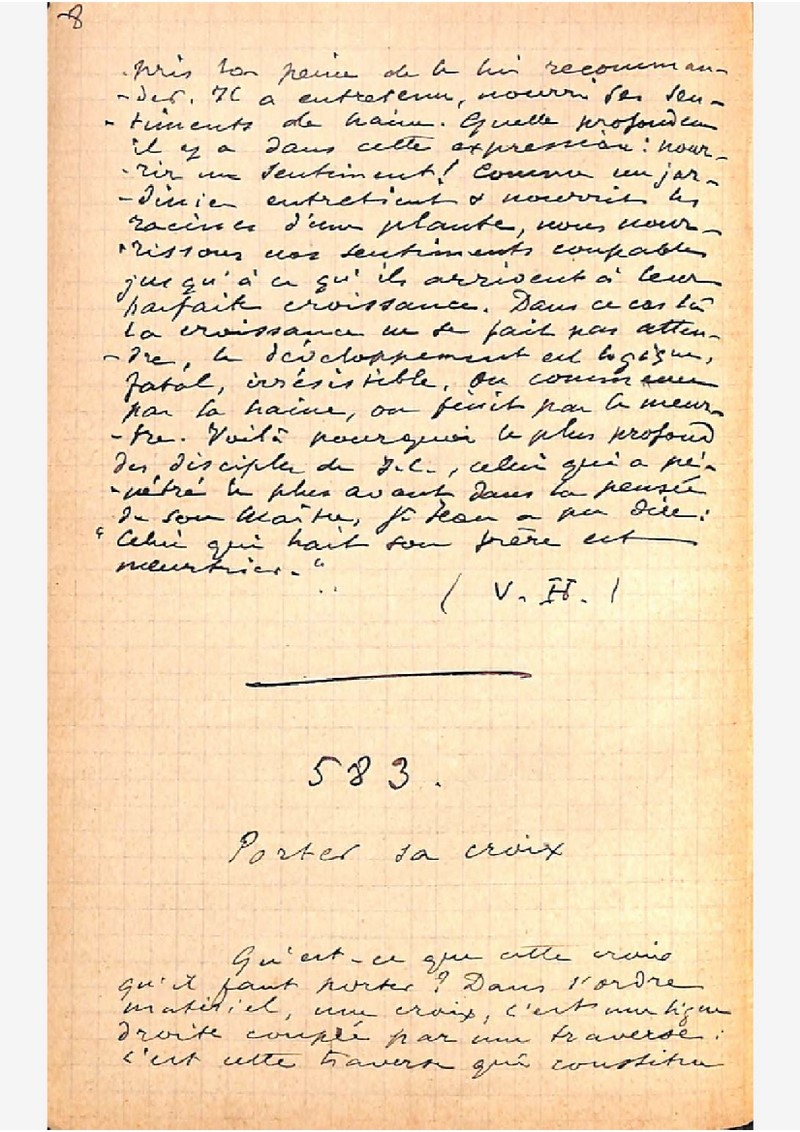 8
pris la peine de le lui recomman-
-der. Il a entretenu, nourri ses sen-
-timents de haine. Quelle profondeur
il y a dans cette expression : nour-
-rir un sentiment ! Comme un jar-
-dinier entretient & nourrit les
racines d'une plante, nous nour-
-rissons nos sentiments coupables
jusqu'à ce qu'ils arrivent à leur
parfaite croissance. Dans ce cas là
la croissance ne se fait pas atten-
-dre, le développement est logique,
fatal, irrésistible. On commence
par la haine, on finit par le meur-
-tre. Voilà pourquoi le plus profond
des disciples de J.C., celui qui a pé-
-nétré le plus avant dans la pensée
de son Maître, St Jean a pu dire :
"Celui qui hait son frère est
meurtrier."
( V. H. )
583.
Porter sa croix
Qu'est-ce que cette croix
qu'il faut porter ? Dans l'ordre
matériel, une croix, c'est une ligne
droite coupée par une traverse :
c'est cette traverse qui constitue